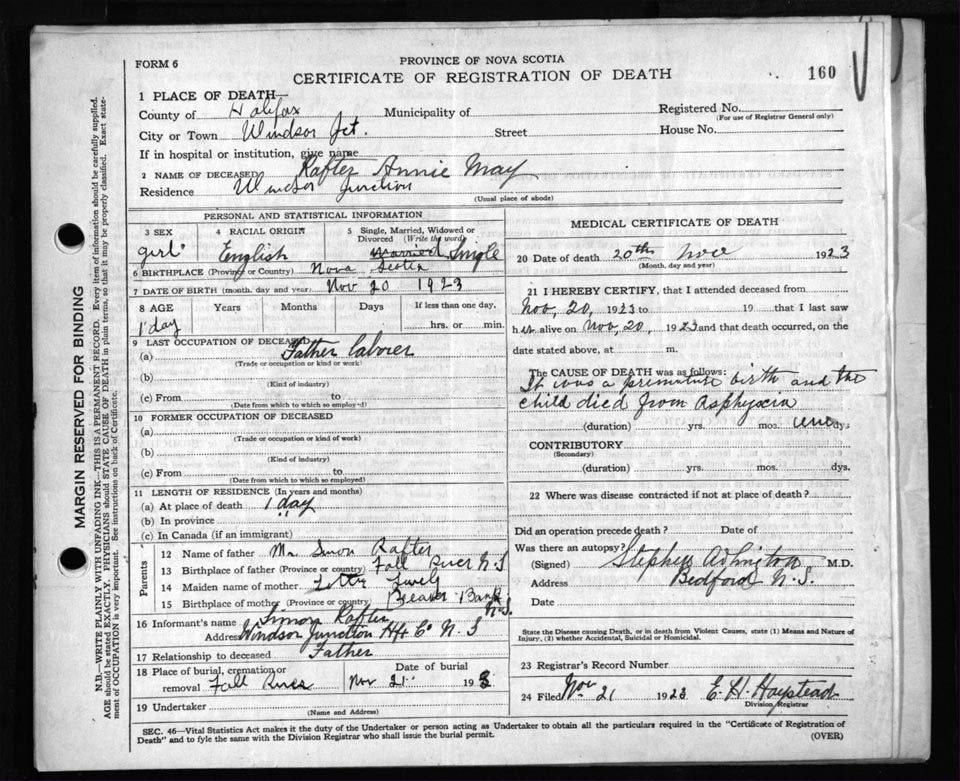 FORM 6
PROVINCE OF NOVA SCOTIA
CERTIFICATE OF REGISTRATION OF DEATH
160
1 PLACE OF DEATH—
County of Halifax Municipality of Registered No.
(For use of Registrar General only)
City or Town Windsor Jct. Street House No.
If in hospital or institution, give name
2 NAME OF DECEASED Rafter Annie May
Residence Windsor Junction
(Usual place of abode)
PERSONAL AND STATISTICAL INFORMATION
3 SEX 4 RACIAL ORIGIN 5 Single, Married, Widowed or Divorced (Write the word)
girl English married Single
6 BIRTHPLACE (Province or Country) Nova Scotia
7 DATE OF BIRTH (month, day and year) Nov 20 1923
8 AGE Years Months Days If less than one day,
1 day hrs. or min.
9 LAST OCCUPATION OF DECEASED
(a) Father laborer
(Trade or occupation or kind or work)
(b)
(Kind of industry)
(c) From to
(Date from which to which so employed)
10 FORMER OCCUPATION OF DECEASED
(a)
(Trade or occupation or kind of work)
(b)
(Kind of industry)
(c) From to
(Date from which to which so employed)
11 LENGTH OF RESIDENCE (In years and months)
(a) At place of death 1 day
(b) In province " "
(c) In Canada (if an immigrant)
Parents
12 Name of father Mr. Simon Rafter
13 Birthplace of father (Province or country) Fall River N.S
14 Maiden name of mother Lively
15 Birthplace of mother (Province or country) Beaver Bank N.S.
16 Informant's name Simon Rafter
Address Windsor Junction Hfx Co N.S
17 Relationship to deceased Father
18 Place of burial, cremation or removal Fall River
Date of burial Nov 21 1923
19 Undertaker
(Name and Address)
MEDICAL CERTIFICATE OF DEATH
20 Date of death 20th Nov 1923
(Month, day and year)
21 I HEREBY CERTIFY, that I attended deceased from
Nov, 20, 1923 to 19 that I last saw
h alive on Nov, 20, 1923 and that death occurred, on the
date stated above, at m.
The CAUSE OF DEATH was as follows:
It was a premature birth and the
child died from Asphyxia
(duration) yrs. mos. one dys
CONTRIBUTORY
(Secondary)
(duration) yrs. mos. dys.
22 Where was disease contracted if not at place of death?
Did an operation precede death? Date of
Was there an autopsy?
(Signed) Stephen Addington M.D.
Address Bedford N.S.
Date
State the Disease causing Death, or in death from Violent Causes, state (1) Means and Nature of
Injury, (2) whether Accidental, Suicidal or Homicidal.
23 Registrar's Record Number
24 Filed Nov 21 1923 E. H. Haystead
Division Registrar
SEC. 46—Vital Statistics Act makes it the duty of the Undertaker or person acting as Undertaker to obtain all the particulars required in the "Certificate of Registration of
Death" and to fyle the same with the Division Registrar who shall issue the burial permit.
(OVER)
MARGIN RESERVED FOR BINDING
N.B.—WRITE PLAINLY WITH UNFADING INK—THIS IS A PERMANENT RECORD. Every item of information should be carefully supplied.
AGE should be stated EXACTLY. PHYSICIANS should STATE CAUSE OF DEATH in plain terms, so that it may be properly classified. Exact state-
ment of OCCUPATION is very important. See instructions on back of Certificate.